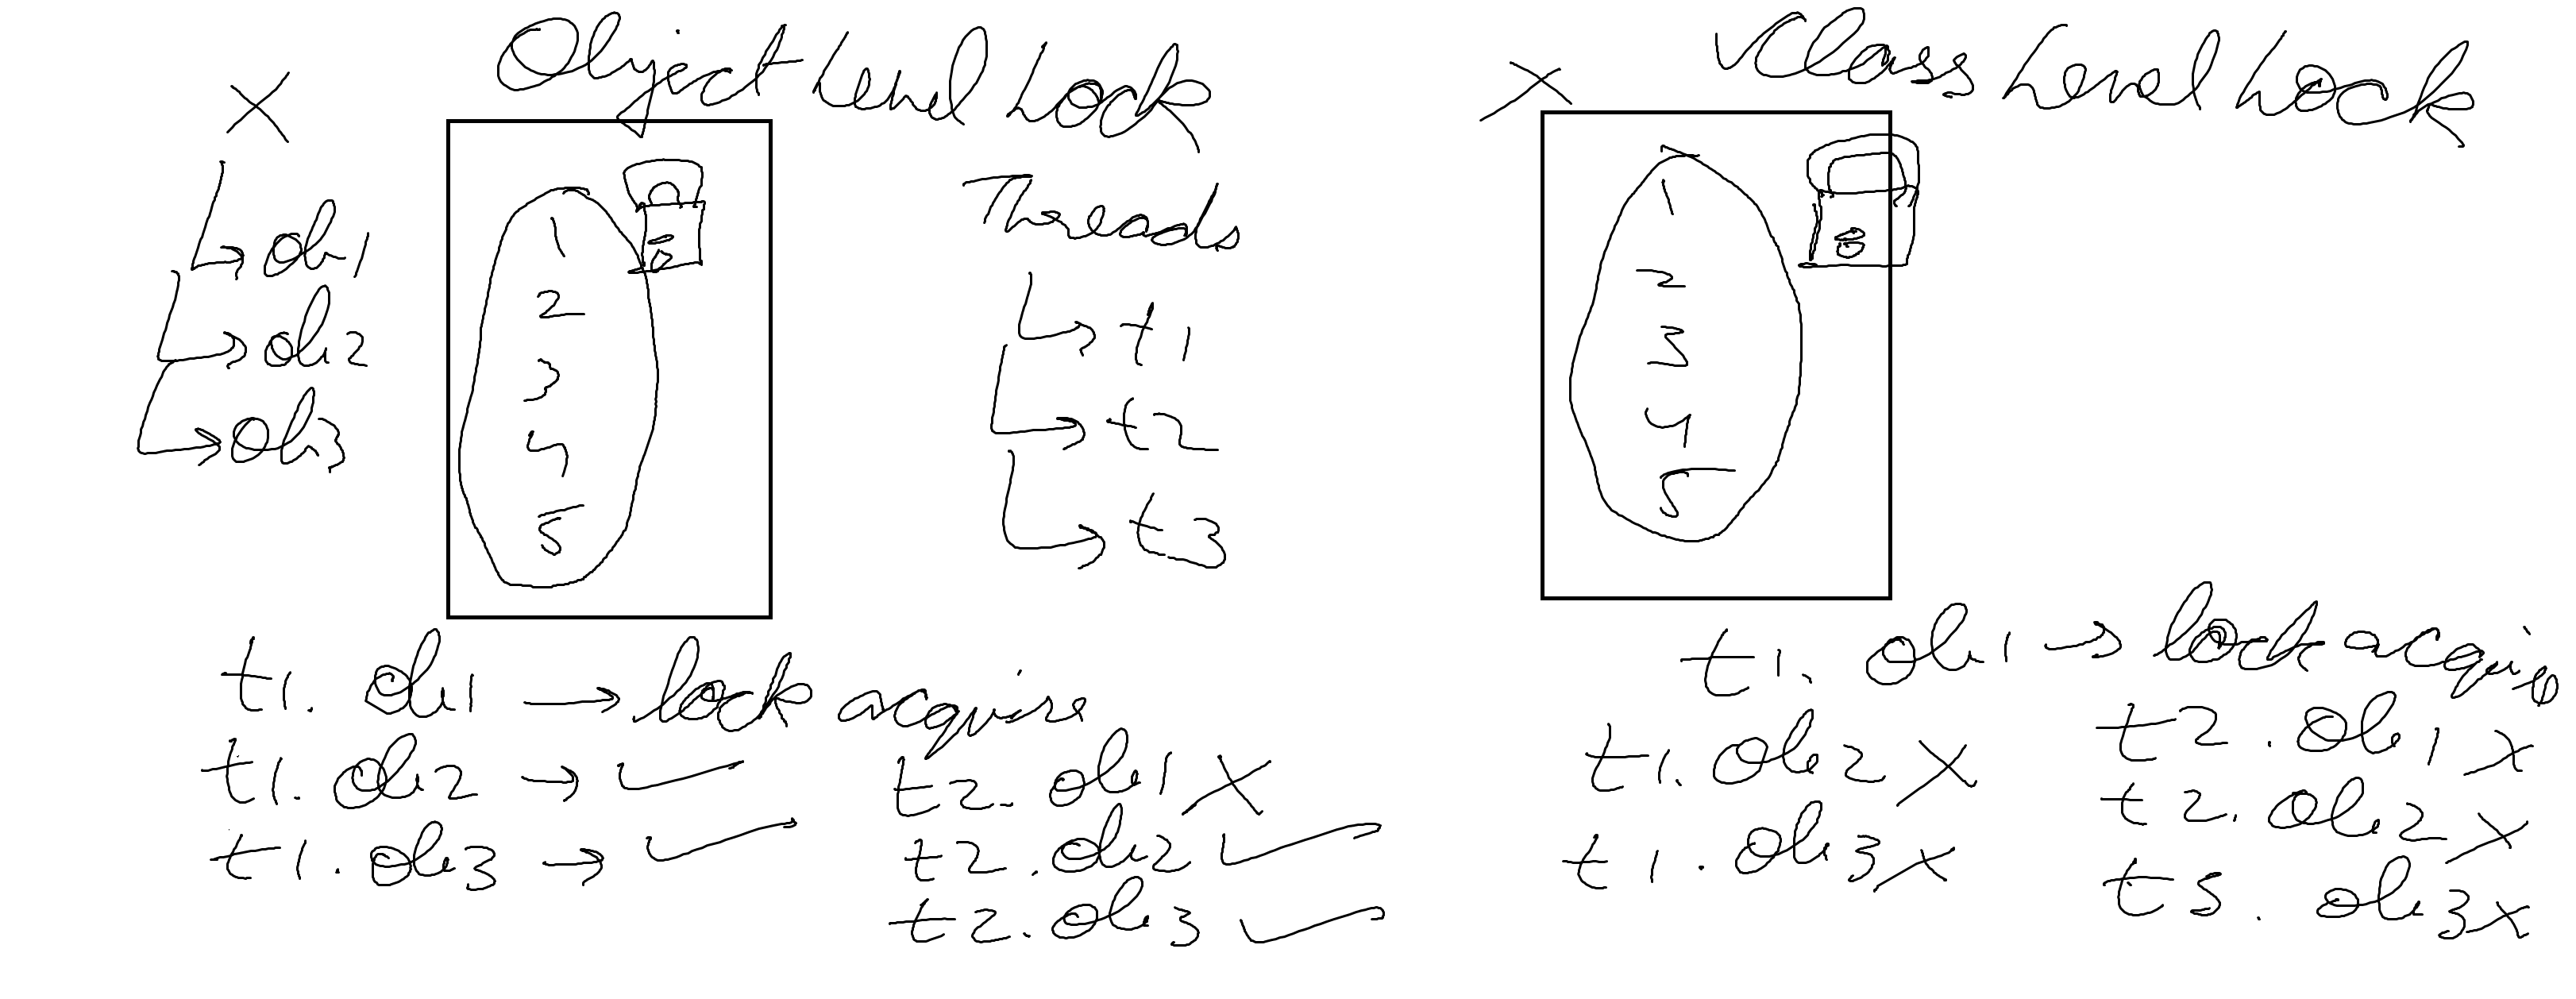 Object Level Lock
X
ob1
ob2
ob3
1
2
3
4
5
Threads
t1
t2
t3
t1. ob1 → lock acquire
t1. ob2 → ✓
t1. ob3 → ✓
t2. ob1 X
t2. ob2 ✓
t2. ob3 ✓
✓Class Level Lock
X
1
2
3
4
5
t1. ob1 → lock acquire
t1. ob2 X
t1. ob3 X
t2. ob1 X
t2. ob2 X
t3. ob3 X